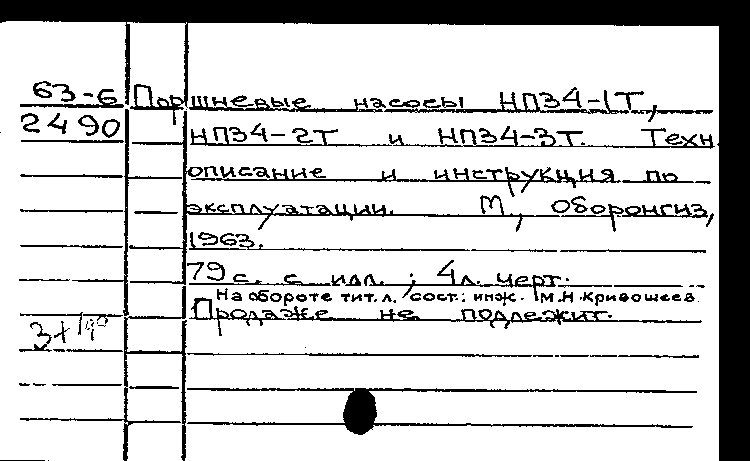 63-6 Поршневые насосы НП34-1Т,
2490 НП34-2Т и НП34-3Т. Техн.
описание и инструкция по
эксплуатации. М., Оборонгиз,
1963.
79 с. с илл.; 4 л. черт.
На обороте тит. л. сост.: инж. М.Н. Кривошеев.
Продаже не подлежит.